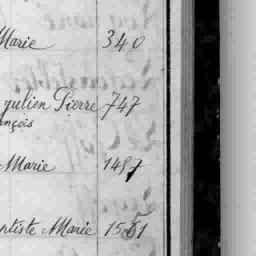 Marie 340
Julien Pierre 747
ançois
Marie 1497
ptiste Marie 1551